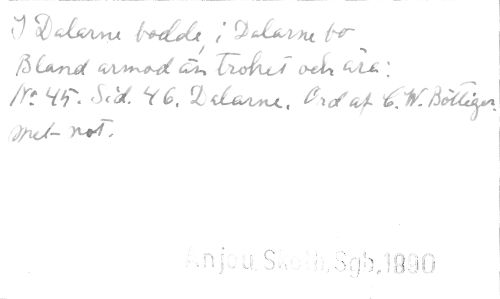 I Dalarne bodde, i Dalarne bo
Bland armod än trohet och ära:
No 45. Sid. 46. Dalarne. Ord af C. W. Böttiger.
met not.
Anjou, Skolh, Sgb, 1890